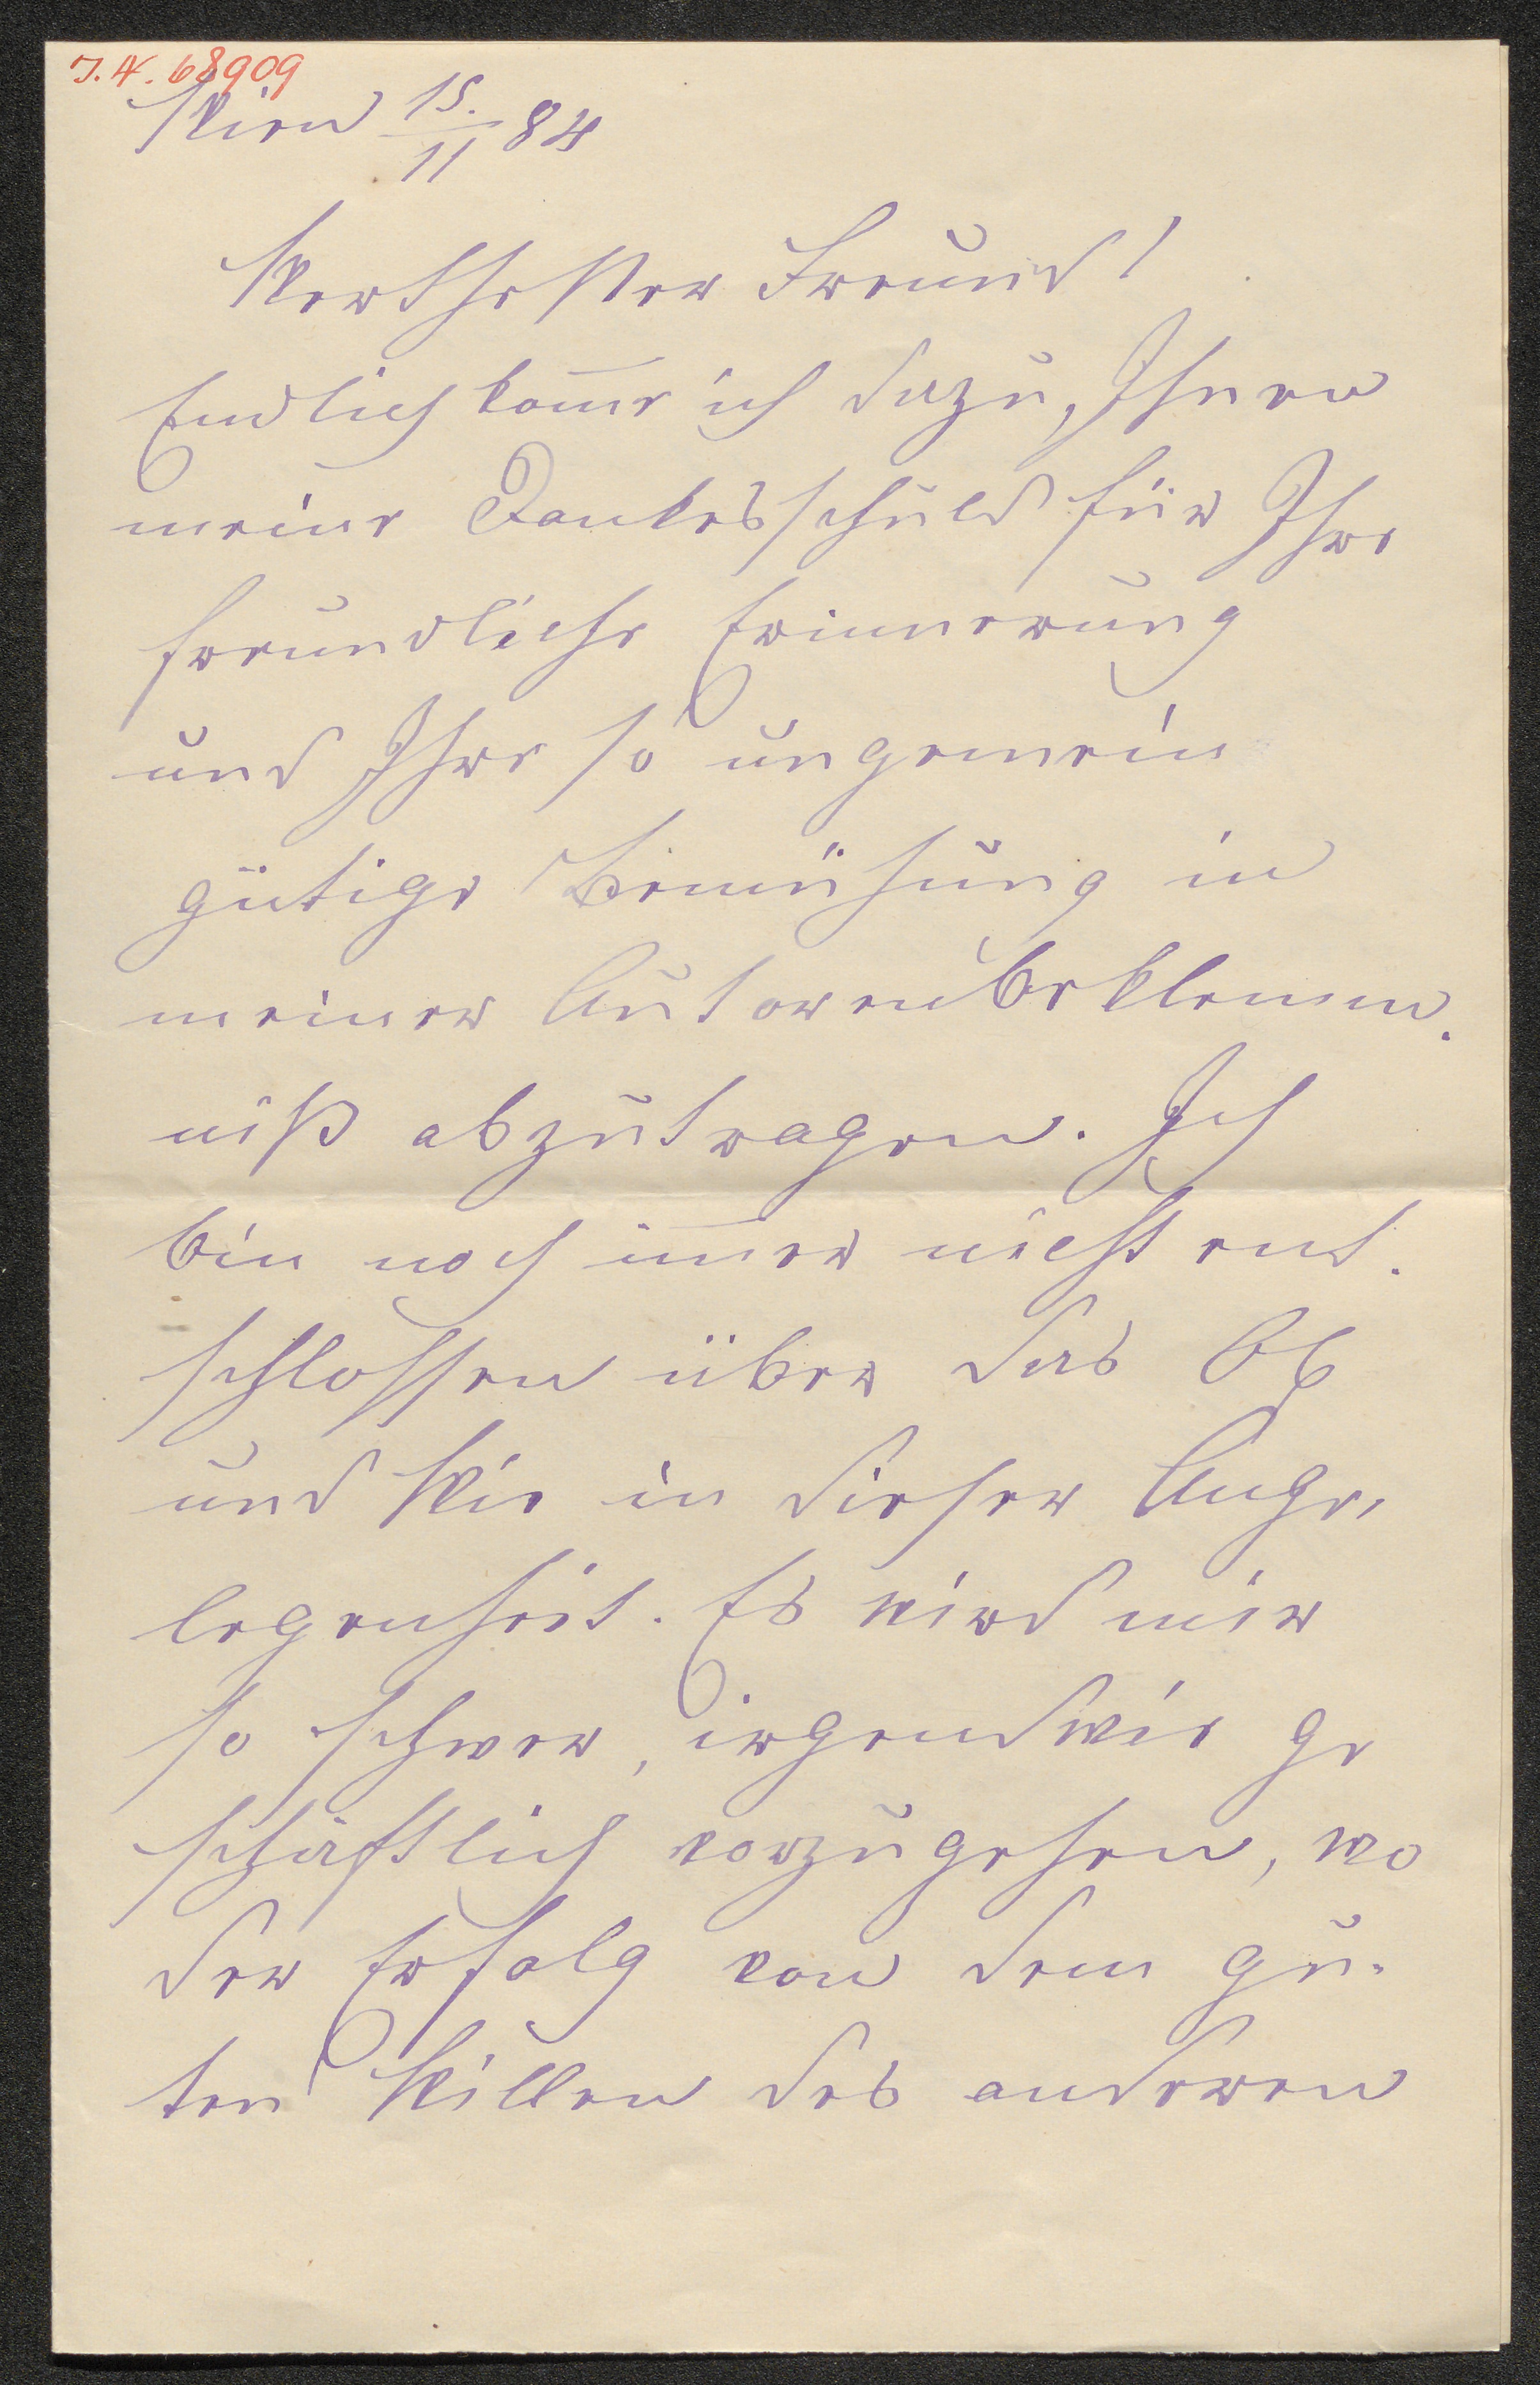 J. N. 68909
Wien 15./11 84
Werthester Freund!
Endlich kom̅e ich dazu, Ihnen
meine Dankesschuld für Ihre
freundliche Erinnerung
und Ihre so ungemein
gütige Bemühung in
meiner Autorenbeklemm-
niß abzutragen. Ich
bin noch im̅er nicht ent-
schlossen über das Ob
und Wie in dieser Ange-
legenheit. Es wird mir
so schwer, irgendwie ge
schäftlich vorzugehen, wo
der Erfolg von dem gu-
ten Willen des anderen